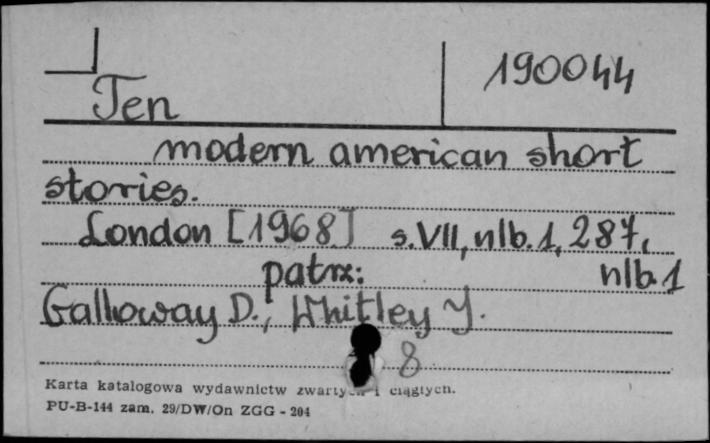 190044
Ten
modern american short
stories.
London [1968] s.VII, nlb.1, 287,
patrz: nlb.1
Galloway D., Whitley J.
8
Karta katalogowa wydawnictw zwartych i ciągłych.
PU-B-144 zam. 29/DW/On ZGG - 204